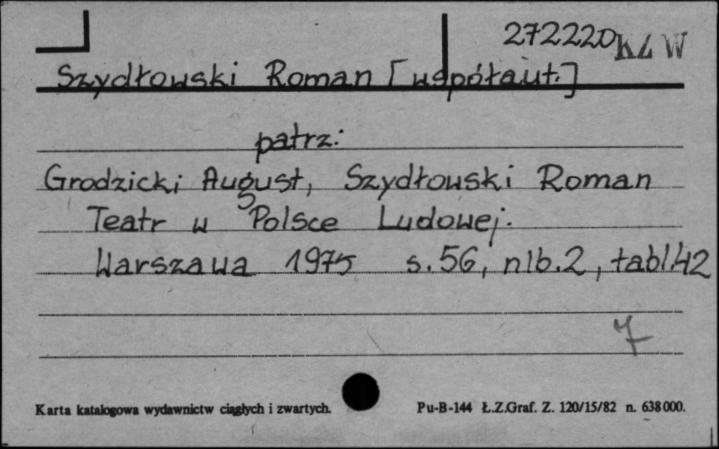 272220 KZ W
Szydłowski Roman [współaut.]
patrz:
Grodzicki August, Szydłowski Roman
Teatr w Polsce Ludowej.
Warszawa 1975 s.56, nlb.2, tabl.42
7
Karta katalogowa wydawnictw ciągłych i zwartych.
Pu-B-144 Ł.Z.Graf. Z. 120/15/82 n. 638000.